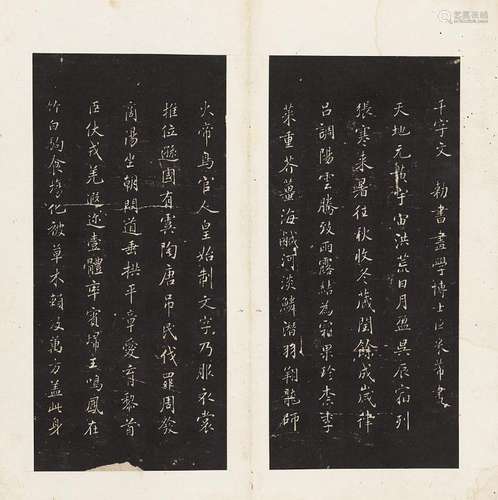 千字文 勅書畫學博士臣米芾書
天地元黃宇宙洪荒日月盈昃辰宿列
張寒來暑往秋收冬藏閏餘成歲律
呂調陽雲騰致雨露結為霜果珍李
菜重芥薑海鹹河淡鱗潛羽翔龍師
火帝鳥官人皇始制文字乃服衣裳
推位遜國有虞陶唐弔民伐罪周發
商湯坐朝問道垂拱平章愛育黎首
臣伏戎羌遐迩壹體率賓歸王鳴鳳在
竹白駒食場化被草木賴及萬方蓋此身